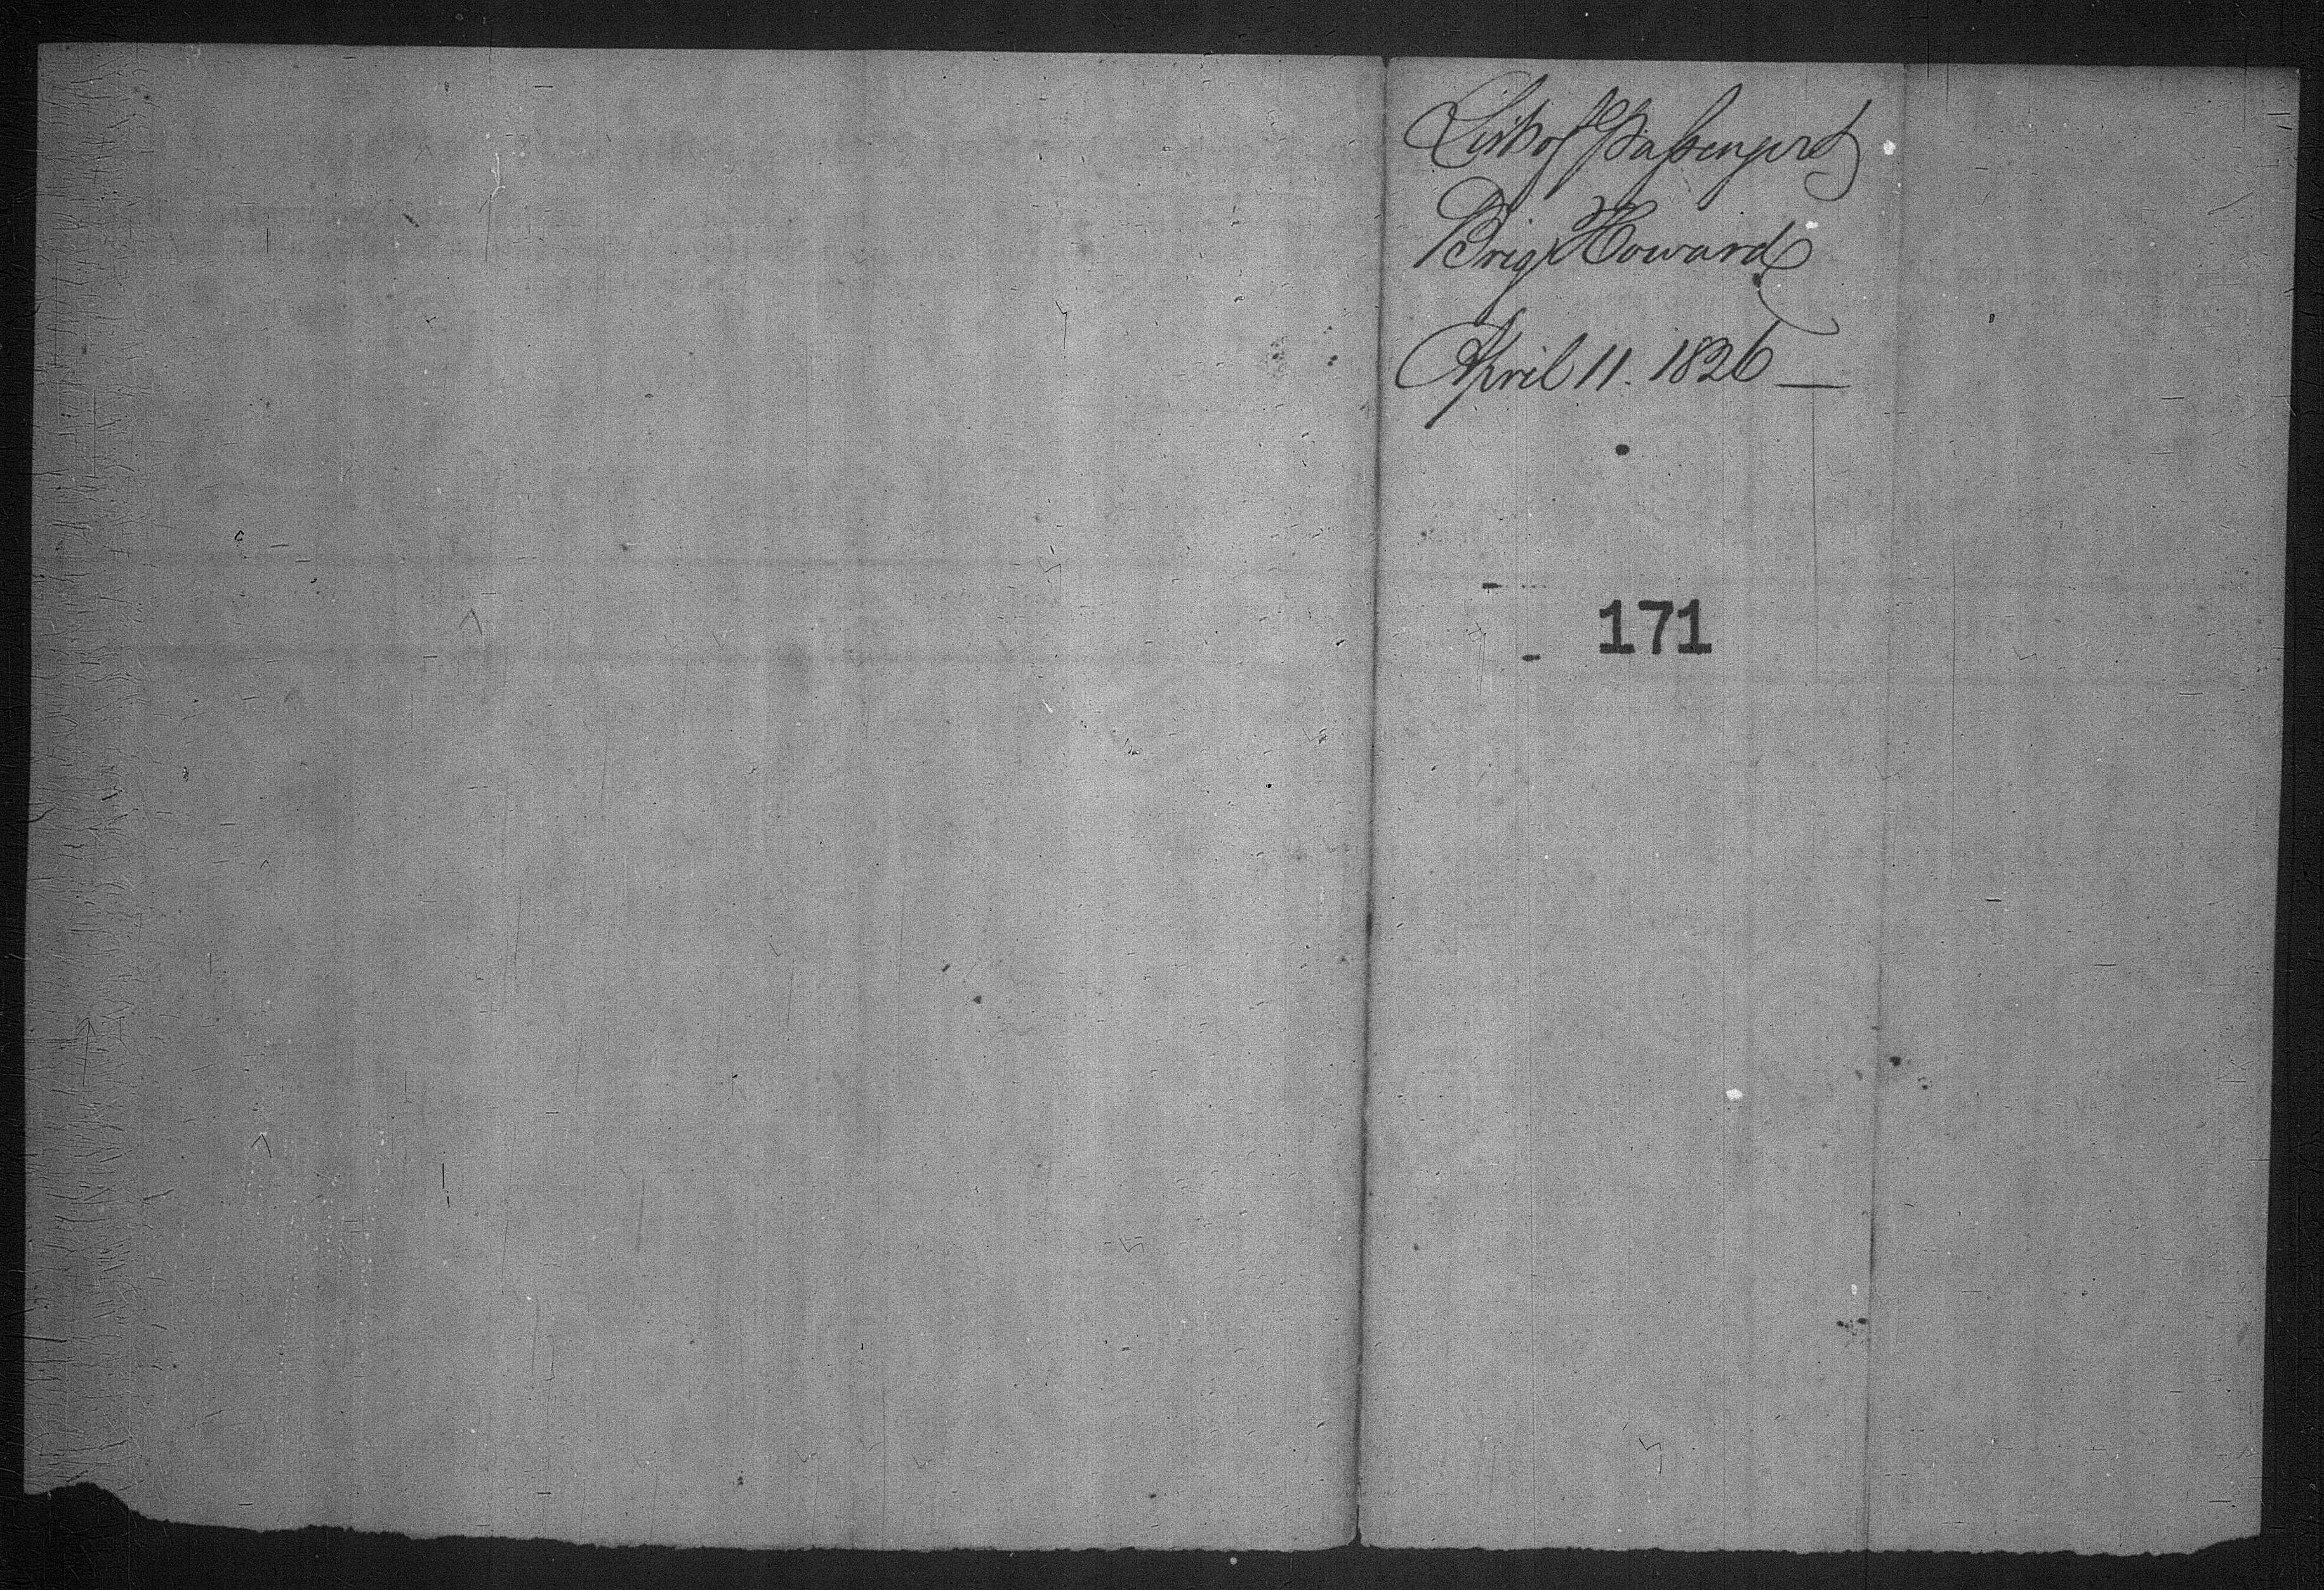 List of Passengers
Brig Howard
April 11. 1826 —
171